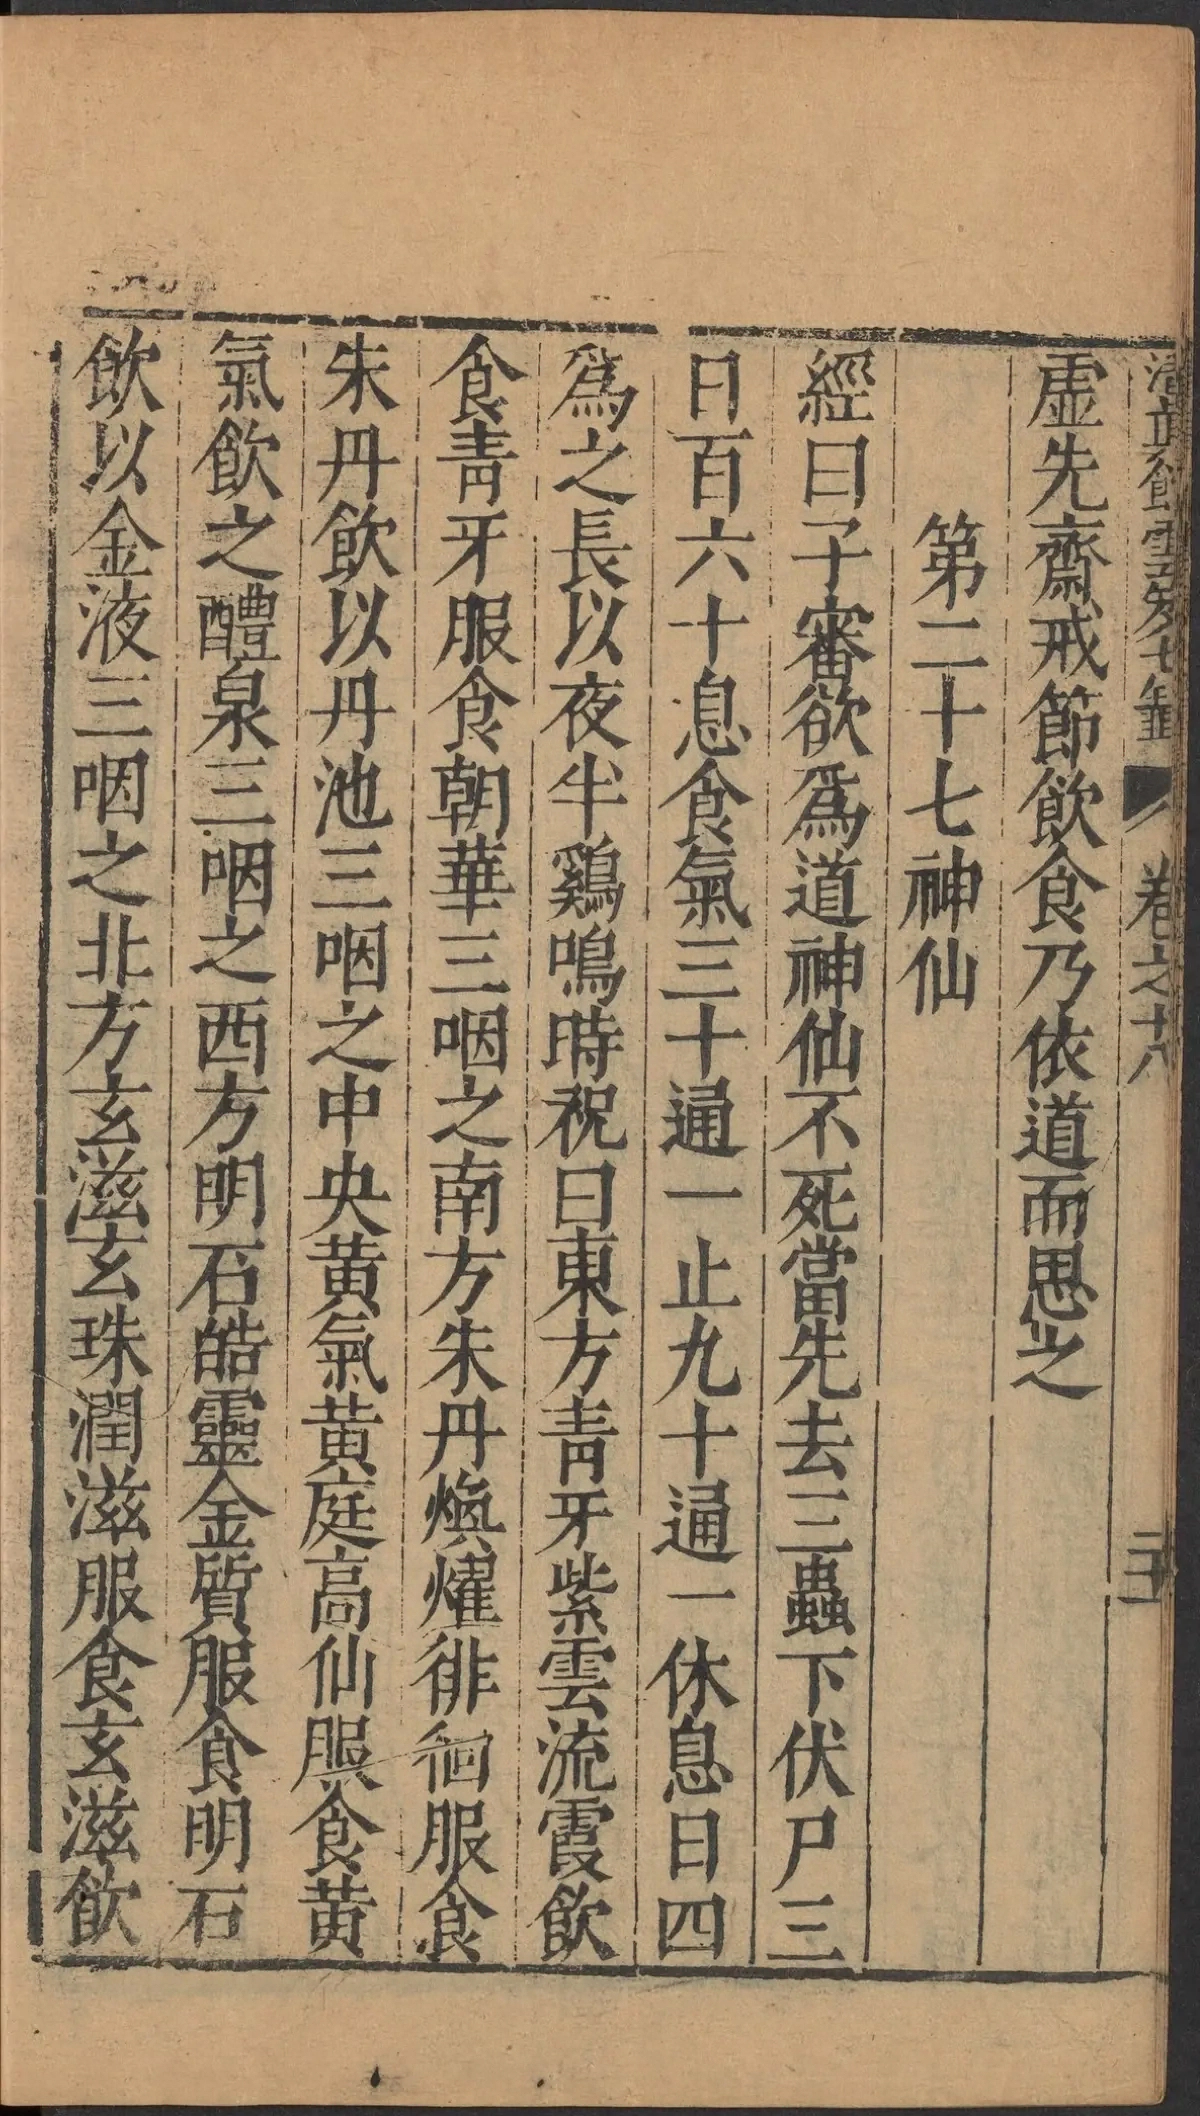 卷之十八
虛先齋戒節飲食乃依道而思之
第二十七神仙
經曰子審欲爲道神仙不死當先去三蟲下伏尸三
日百六十息食氣三十通一止九十通一休息日四
爲之長以夜半鷄鳴時祝曰東方靑牙紫雲流霞飲
食靑牙服食朝華三咽之南方朱丹煥燿徘徊服食
朱丹飲以丹池三咽之中央黃氣黃庭高仙服食黃
氣飲之醴泉三咽之西方明石皓靈金質服食明石
飲以金液三咽之北方玄滋玄珠潤滋服食玄滋飮